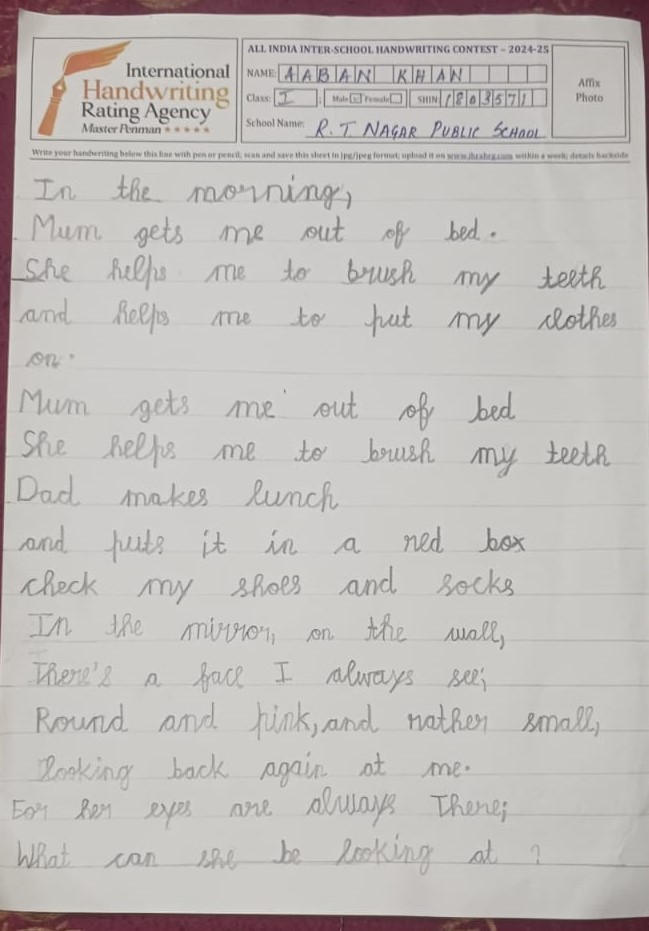 International
Handwriting
Rating Agency
Master Penman
ALL INDIA INTER-SCHOOL HANDWRITING CONTEST – 2024-25
NAME: AABAN KHAN
Class: I Male Female SHIN 1803571
School Name: R.T NAGAR PUBLIC SCHOOL
Affix
Photo
Write your handwriting below this line with pen or pencil; scan and save this sheet in jpg/jpeg format; upload it on www.ihrahrg.com within a week; details backside
In the morning,
Mum gets me out of bed.
She helps me to brush my teeth
and helps me to put my clothes
on.
Mum gets me out of bed
She helps me to brush my teeth
Dad makes lunch
and puts it in a red box
check my shoes and socks
In the mirror, on the wall,
There's a face I always see;
Round and pink, and rather small,
looking back again at me.
For her eyes are always There;
What can she be looking at ?